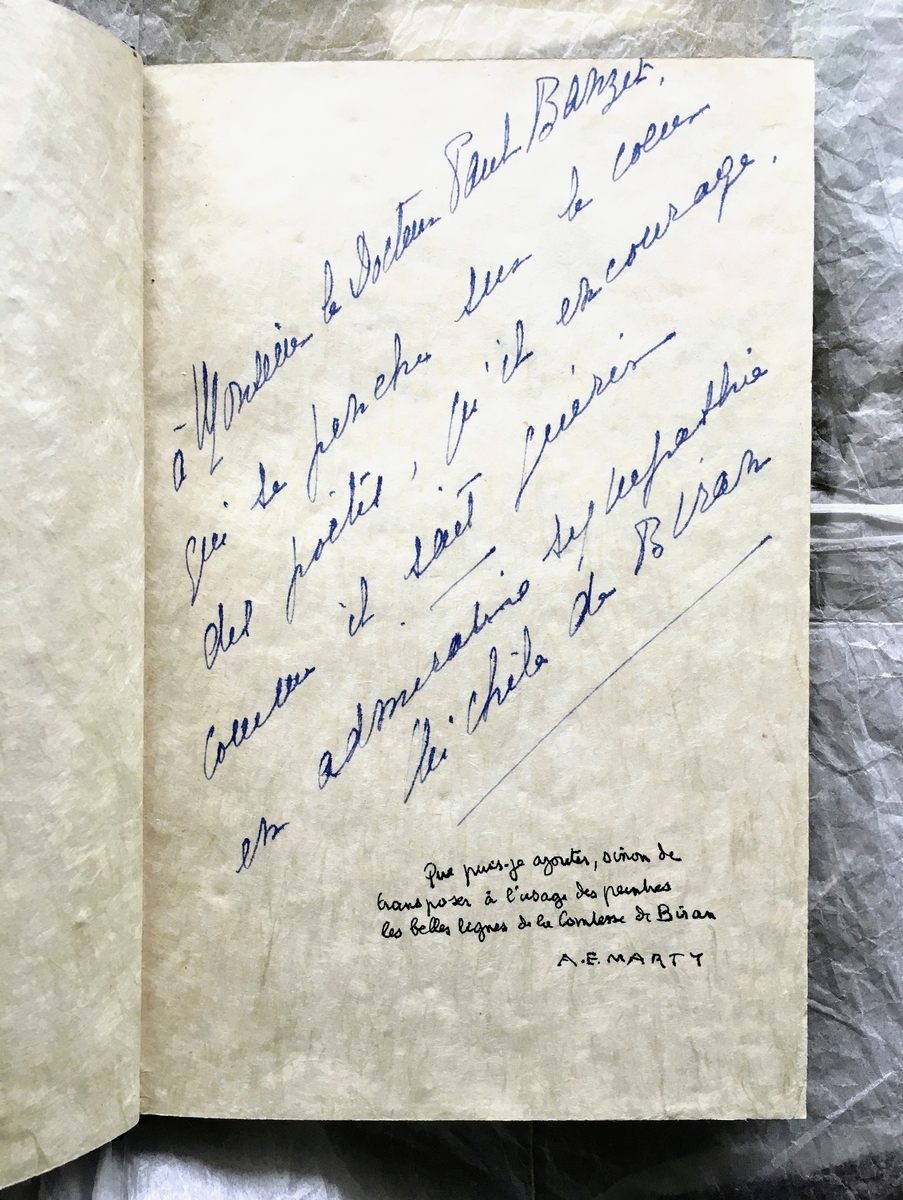 à Monsieur le Docteur Paul Banzet,
qui se penche sur le cœur
des poètes, qu'il encourage,
comme il sait guérir. —
en admirative sympathie
Michèle de Biran
Que puis-je ajouter, sinon de
transposer à l'usage des peintres
les belles lignes de la Comtesse de Biran
A.E. MARTY